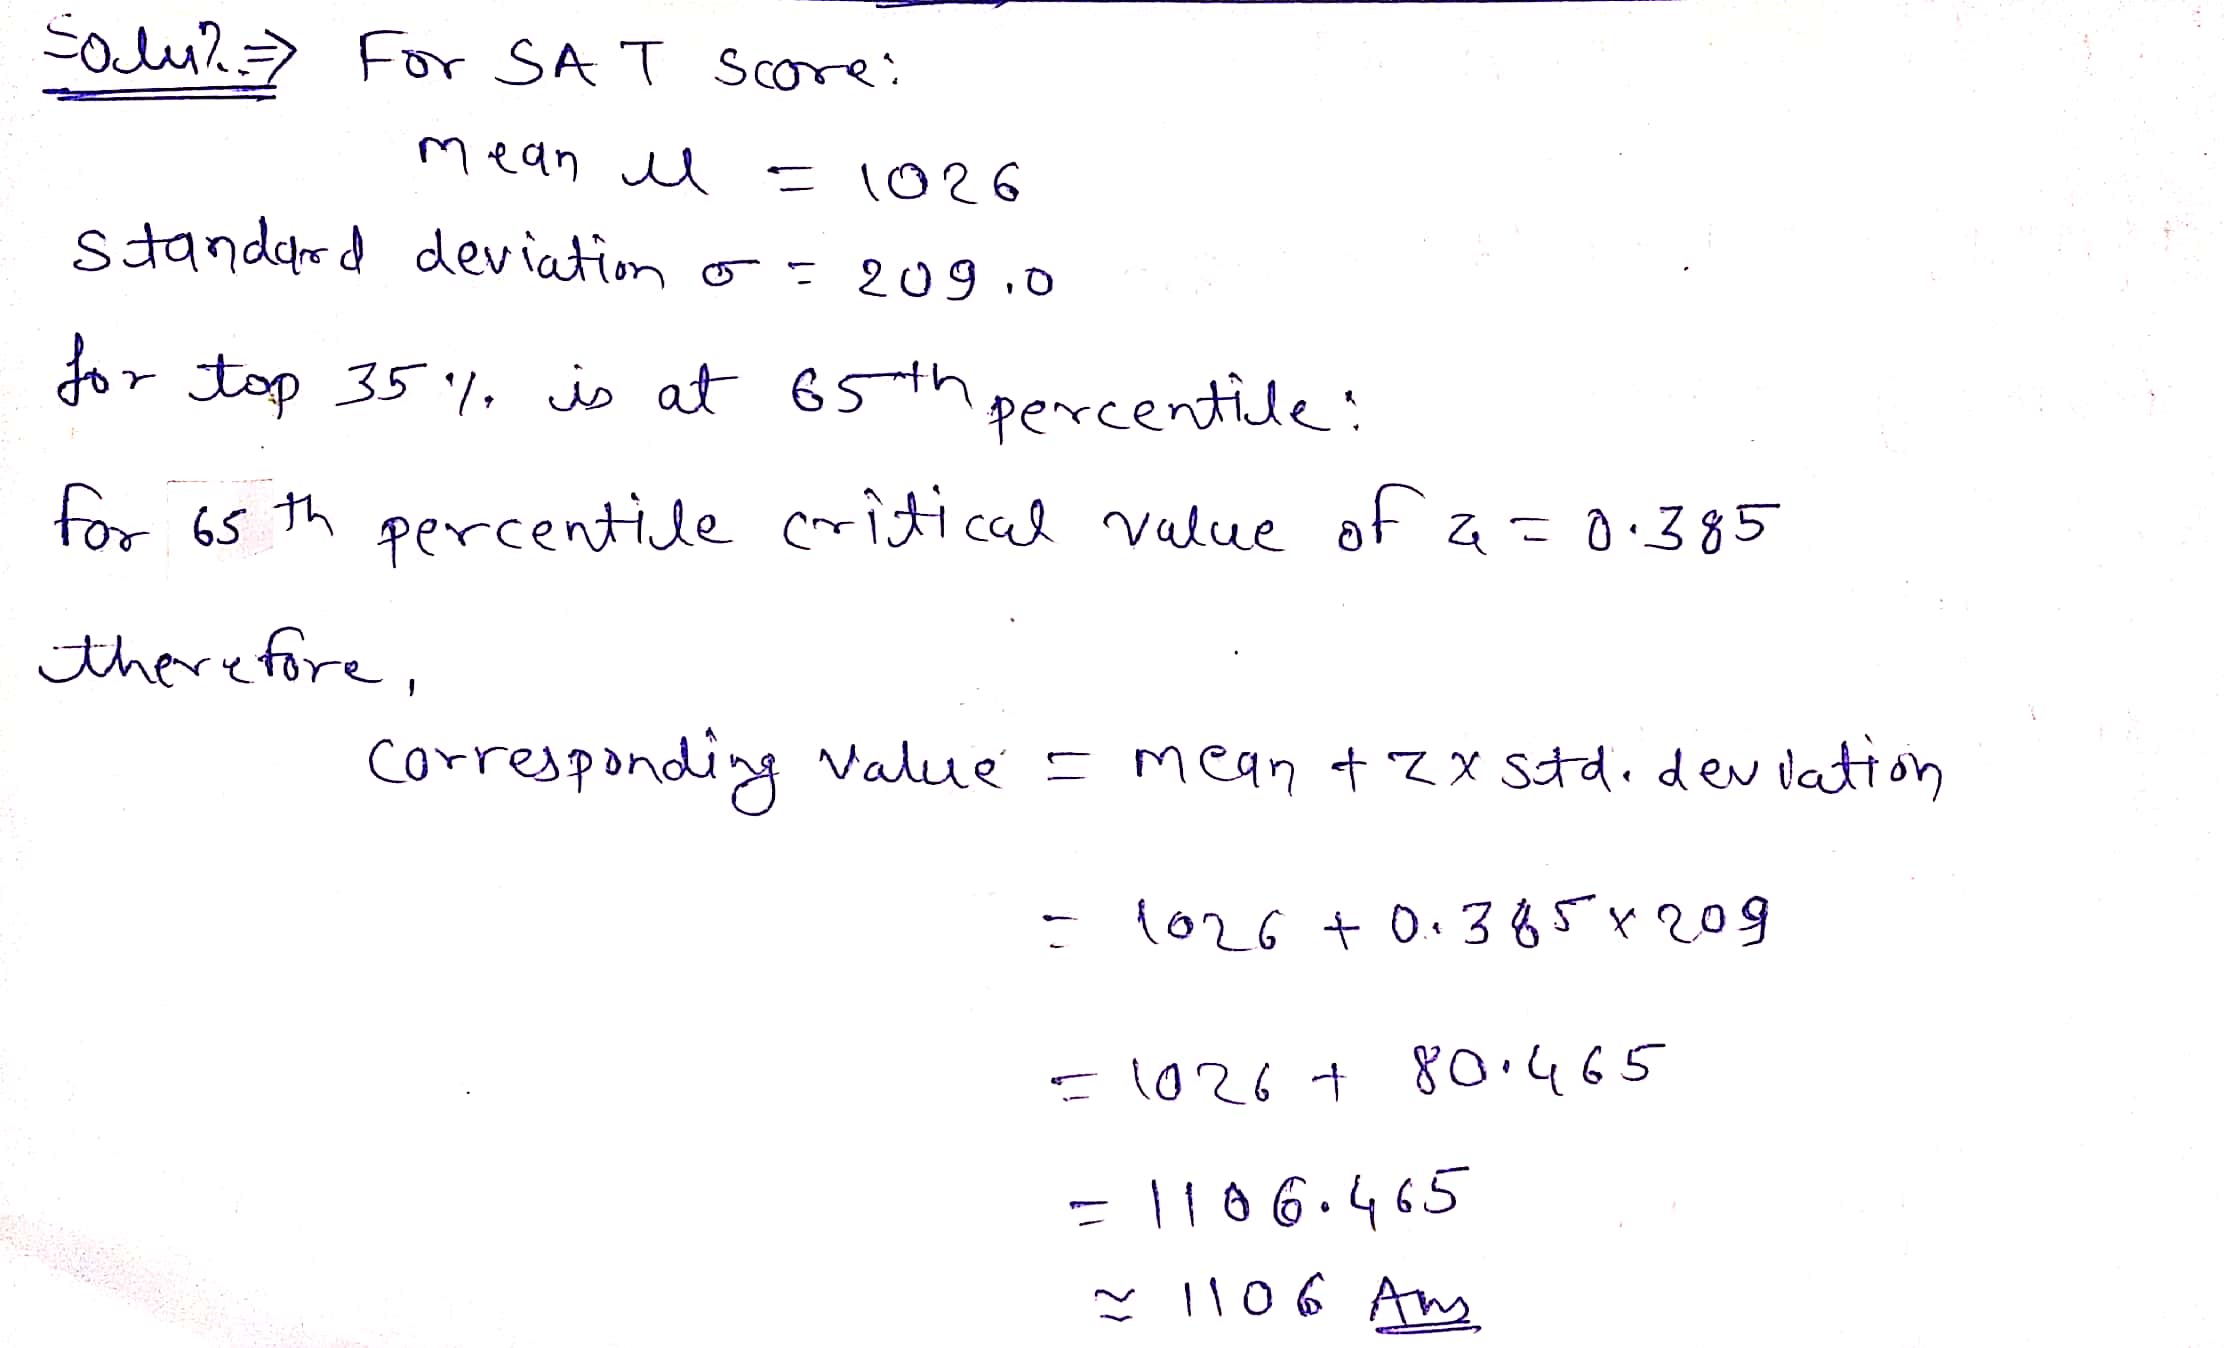 Solun. ⇒ For SAT Score:
mean μ = 1026
standard deviation σ = 209.0
for top 35 % is at 65th percentile:
For 65th percentile critical value of z = 0.385
therefore,
Corresponding value = mean + z x std. deviation
= 1026 + 0.385 x 209
= 1026 + 80.465
= 1106.465
≈ 1106 Ans